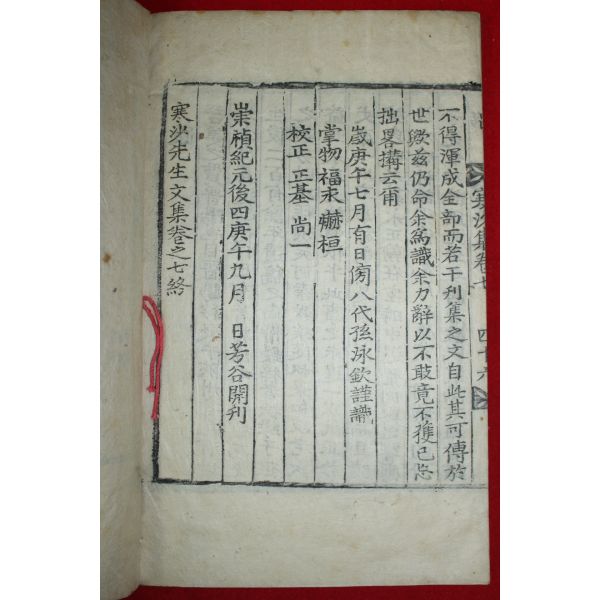 寒沙集卷七 四十六
不得渾成全部而若干刊集之文自此其可傳於
世歟玆仍命余爲識余力辭以不敢竟不獲已忘
拙畧搆云爾
歲庚午七月有日傍八代孫泳欽謹識
掌物 福永 嚇桓
校正 正基 尚一
崇禎紀元後四庚午九月 日芳谷開刊
寒沙先生文集卷之七終